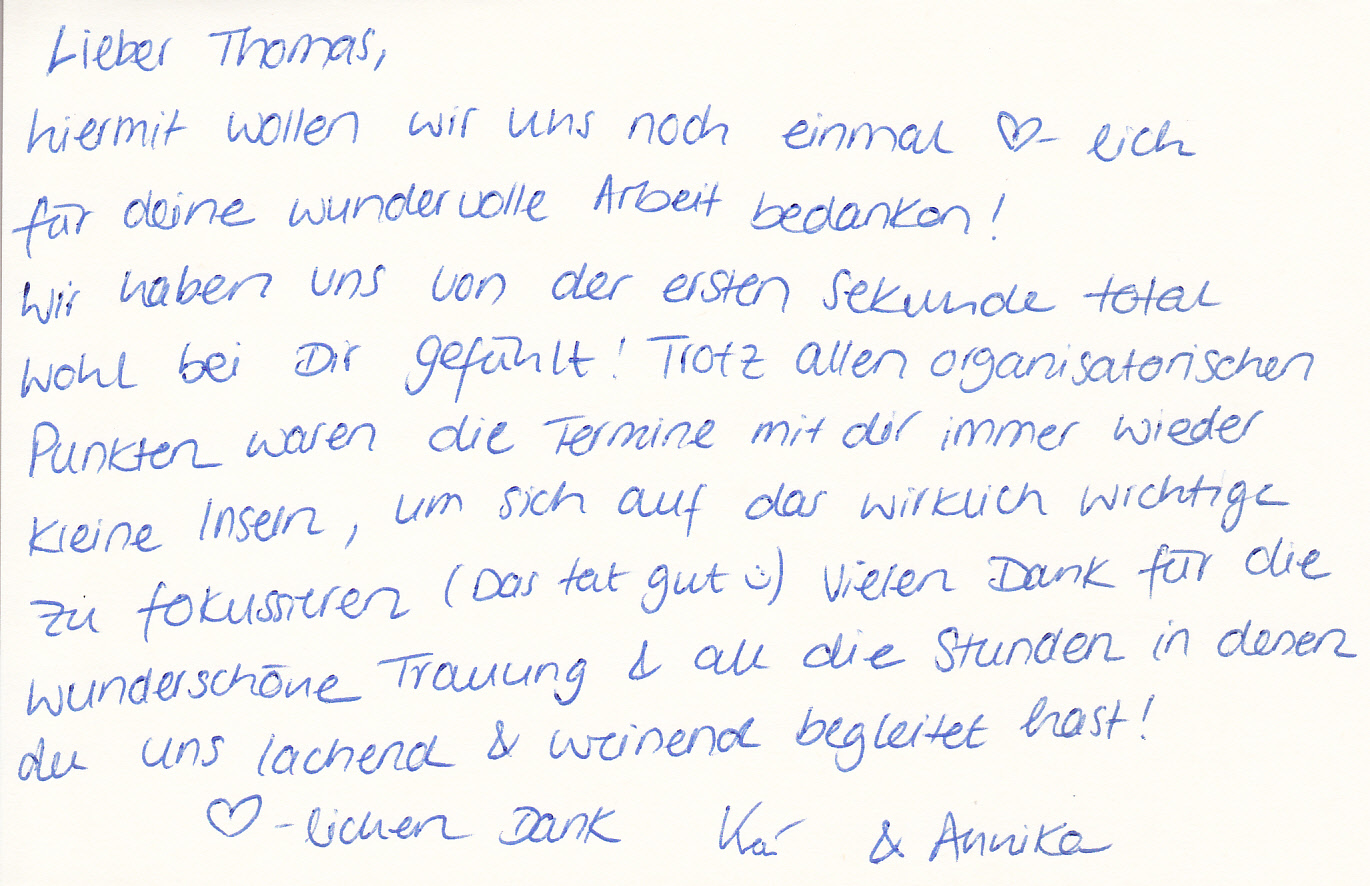 Lieber Thomas,
hiermit wollen wir uns noch einmal ♡-lich
für deine wundervolle Arbeit bedanken!
Wir haben uns von der ersten Sekunde total
wohl bei Dir gefühlt! Trotz allen organisatorischen
Punkten waren die Termine mit dir immer wieder
kleine Inseln, um sich auf das wirklich wichtige
zu fokussieren (Das tat gut ☺) Vielen Dank für die
wunderschöne Trauung & all die Stunden in denen
du uns lachend & weinend begleitet hast!
♡-lichen Dank & Annika